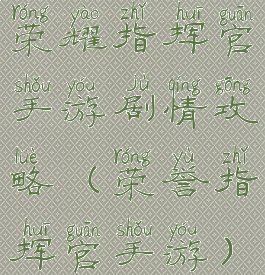 róng yào zhǐ huī guān
荣耀指挥官
shǒu yóu jù qíng gōng
手游剧情攻
lüè róng yù zhǐ
略（荣誉指
huī guān shǒu yóu
挥官手游）